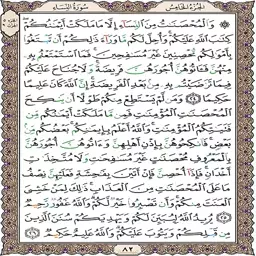 الجزء الخامس سورة النساء
والمحصنت من النساء إلا ما ملكت أيمنكم
كتب الله عليكم وأحل لكم ما وراء ذلكم أن تبتغوا
بأمولكم محصنين غير مسفحين فما استمتعتم به
منهن فـاتوهن أجورهن فريضة ولا جناح عليكم
فيما ترضيتم به من بعد الفريضة إن الله كان عليما
حكيما ٢٤ ومن لم يستطع منكم طولا أن ينكح
المحصنت المؤمنت فمن ما ملكت أيمنكم من
فتيتكم المؤمنت والله أعلم بإيمنكم بعضكم من
بعض فانكحوهن بإذن أهلهن وءاتوهن أجورهن
بالمعروف محصنت غير مسفحت ولا متخذت
أخدان فإذا أحصن فإن أتين بفحشة فعليهن نصف
ما على المحصنت من العذاب ذلك لمن خشي
العنت منكم وأن تصبروا خير لكم والله غفور رحيم
٢٥ يريد الله ليبين لكم ويهديكم سنن الذين
من قبلكم ويتوب عليكم والله عليم حكيم ٢٦
٨٢